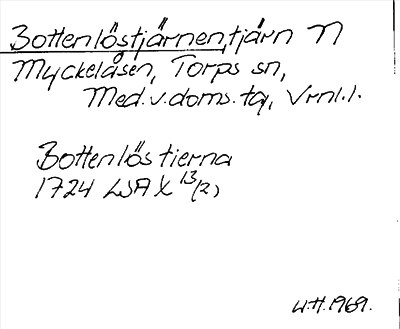 Bottenlöstjärnen, tjärn N
Myckelåsen, Torps sn,
Med.v.doms.tg, Vrnl.l.
Bottenlöstierna
1724 LSA X 13/(2)
W.H. 1969.